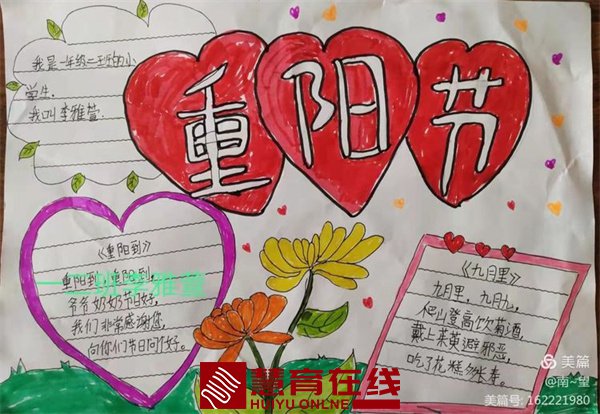 我是一年级二班的小
学生.
我叫李雅萱.
重阳节
《重阳到》
重阳到,重阳到,
爷爷奶奶节日好,
我们非常感谢您,
向你们节日问个好。
一二班李雅萱
《九月里》
九月里,九月九,
爬山登高饮菊酒,
戴上茱萸避邪恶,
吃了花糕
慧育在线
HUIYU ONLINE
美篇
@南~望
美篇号: 162221980